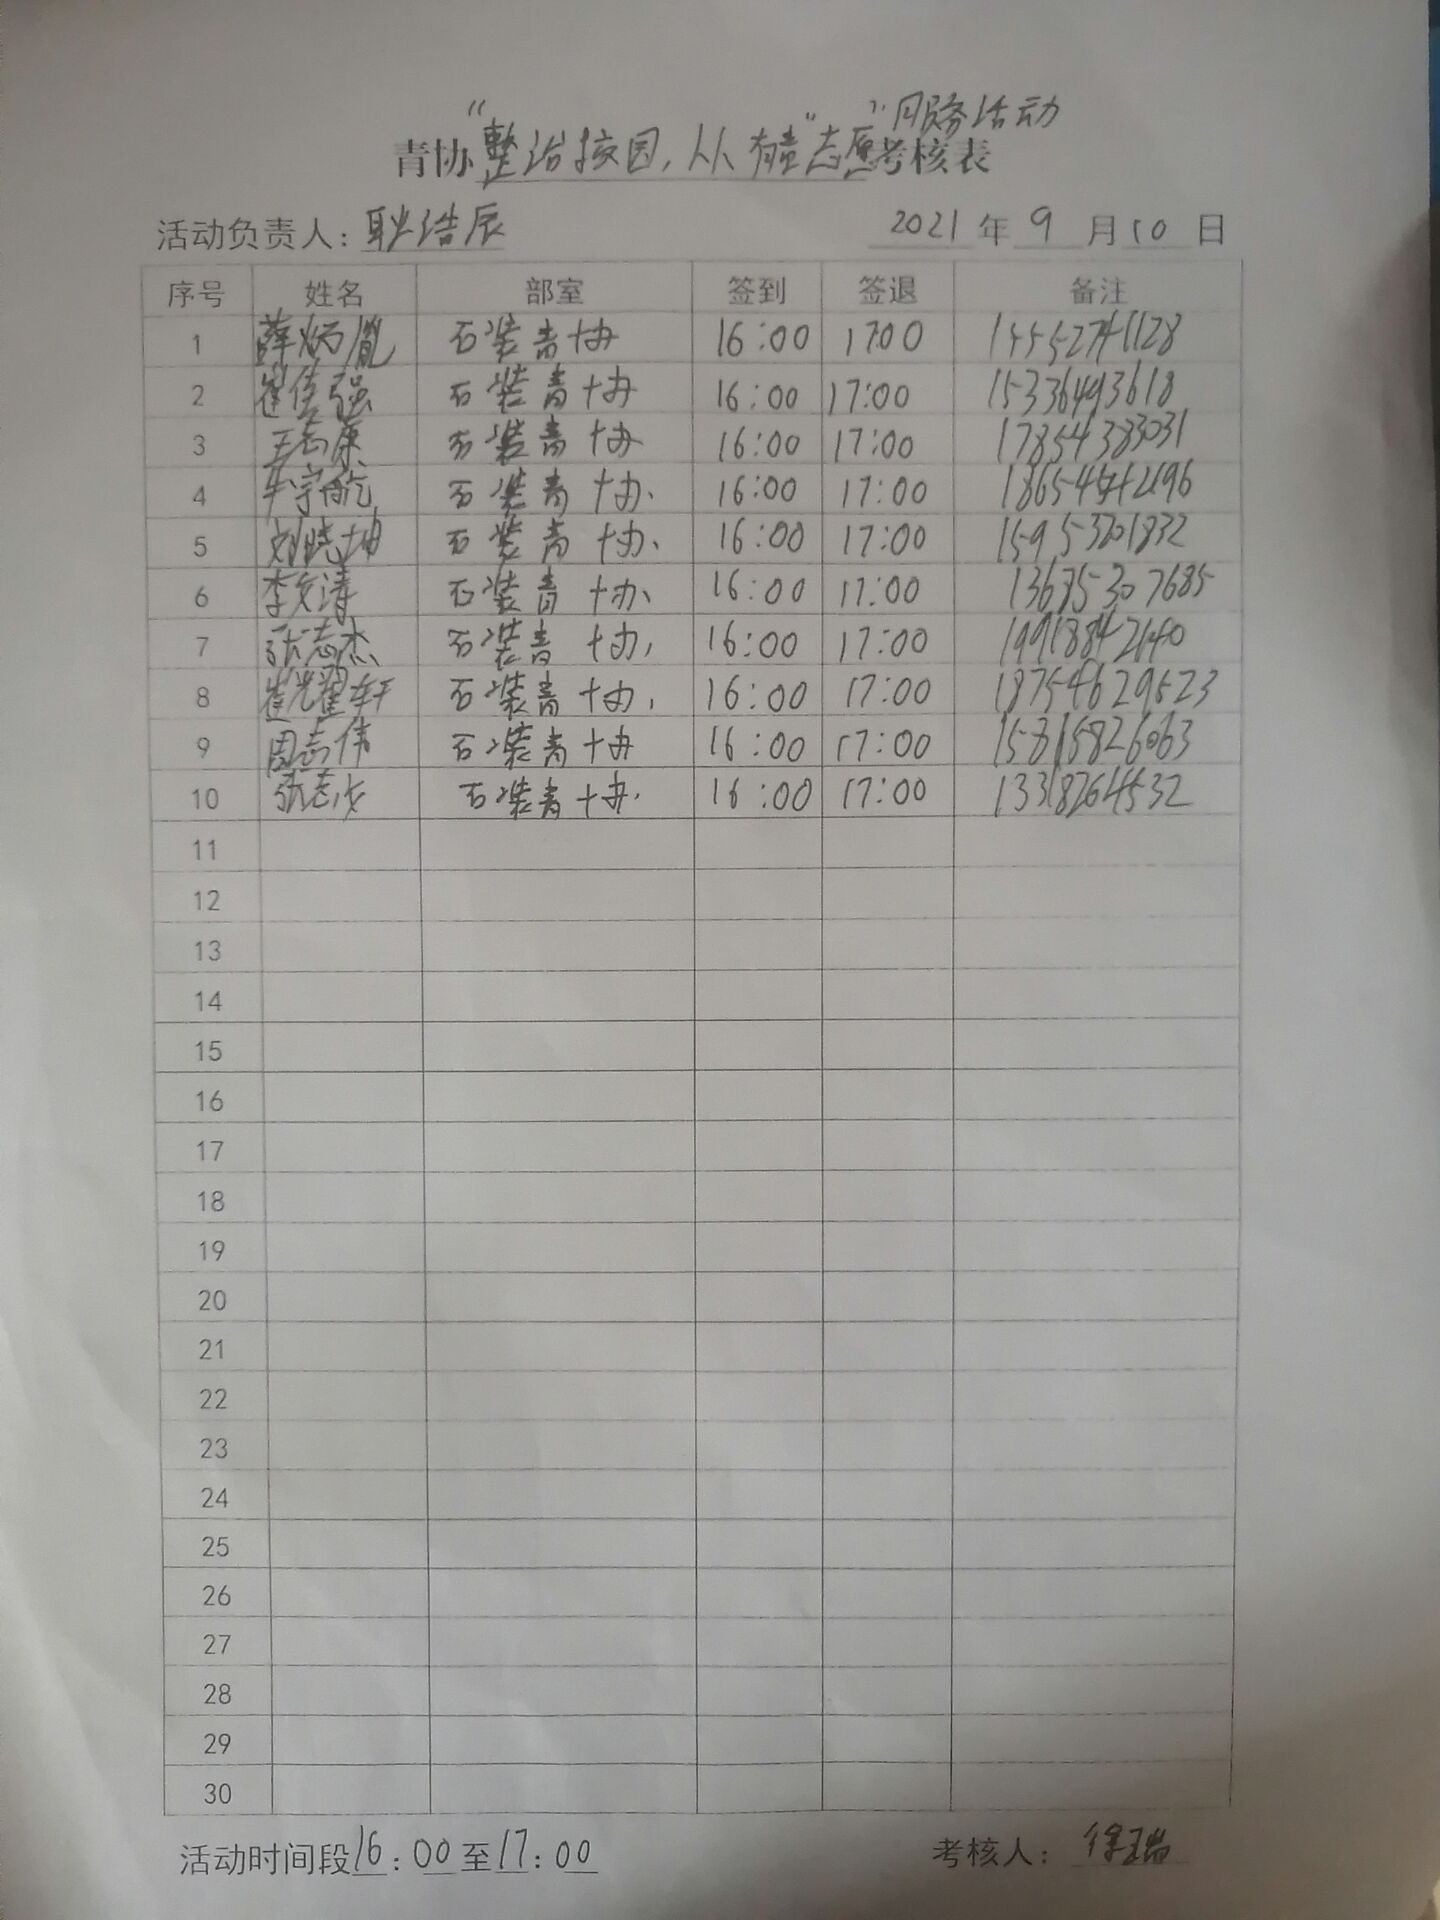 青协"整治校园,从有责"志愿"服务活动考核表
活动负责人:耿浩辰 2021年9月10日
序号 姓名 部室 签到 签退 备注
1 薛炳胤 石装青协 16:00 17:00 15552741128
2 崔佳强 石装青协 16:00 17:00 15336493618
3 王志康 石装青协 16:00 17:00 17854383031
4 车宇航 石装青协 16:00 17:00
5 刘晓坤 石装青协 16:00 17:00 15953201832
6 李文涛 石装青协 16:00 17:00 13675307685
7 张志杰 石装青协 16:00 17:00 19918842140
8 崔光耀轩 石装青协 16:00 17:00 18754629523
9 周志伟 石装青协 16:00 17:00 15315826063
10 张志文 石装青协 16:00 17:00 13318264532
11
12
13
14
15
16
17
18
19
20
21
22
23
24
25
26
27
28
29
30
活动时间段16:00至17:00 考核人:徐瑞